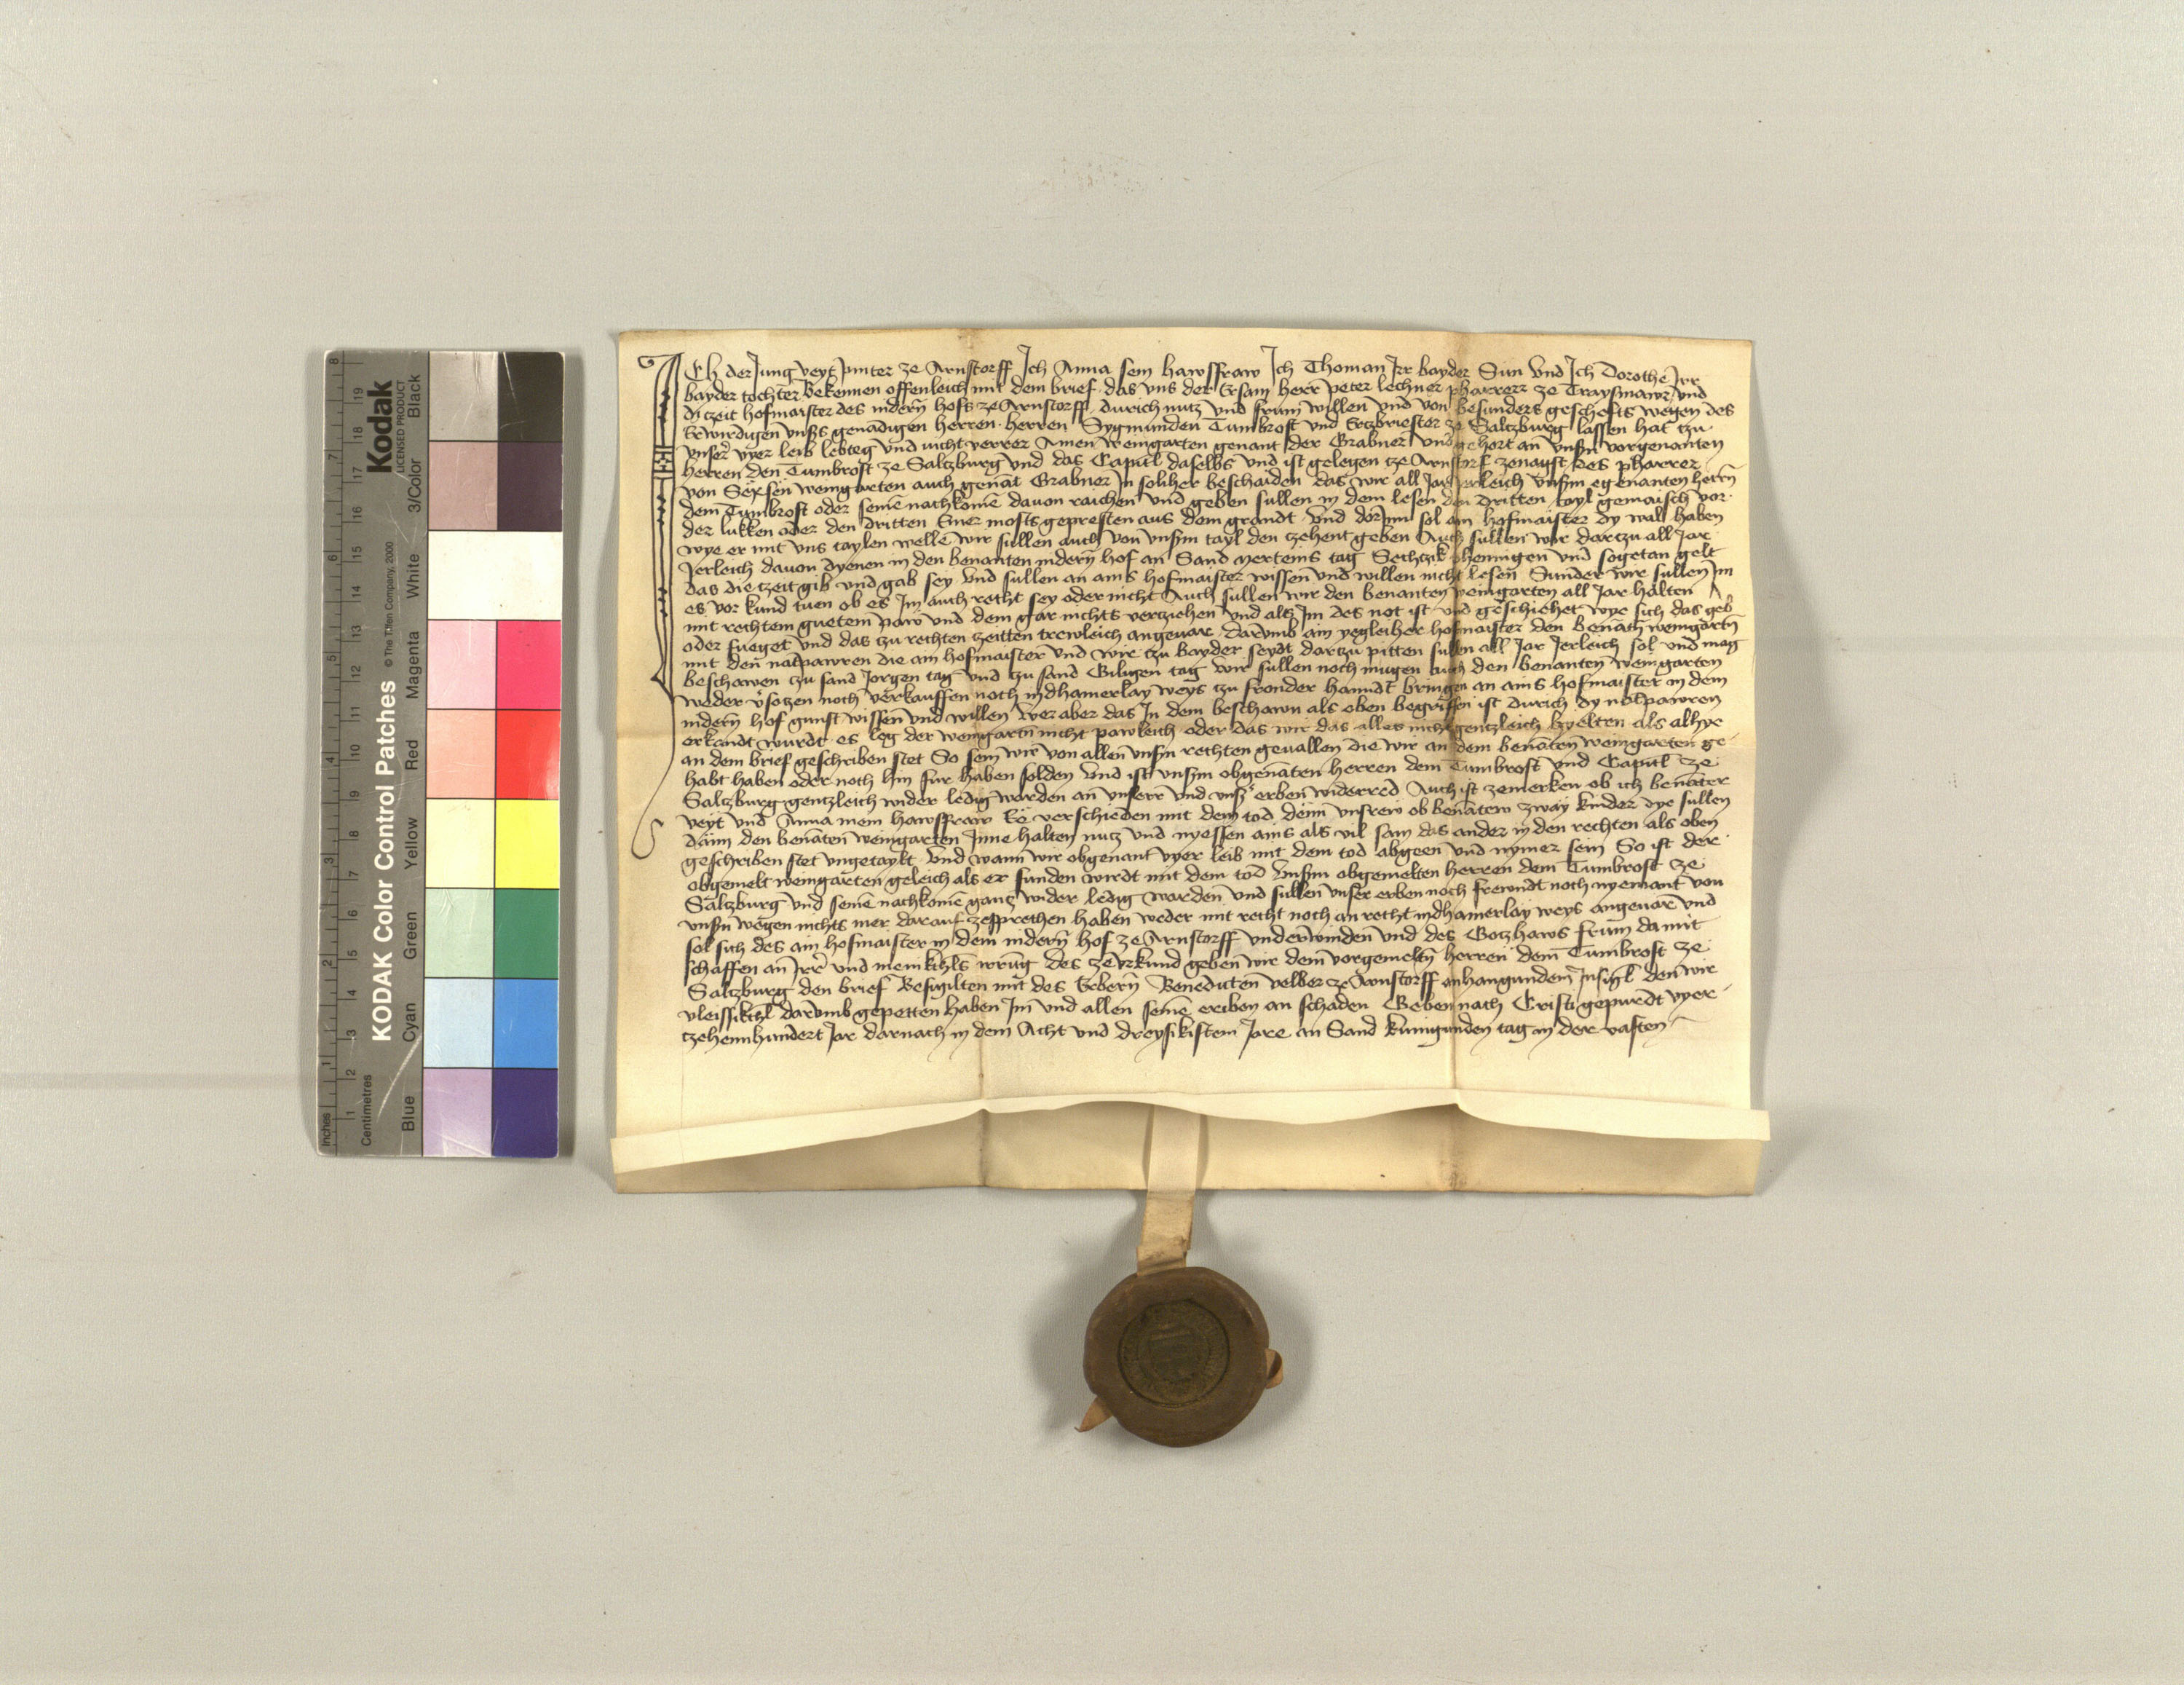 Ich der Jung veyt pinter ze Arnstorff Ich Anna sein hawsfraw Ich Thoman Irr bayder Sun Und Ich Dorothe Irr
bayder tochter Bekennen offenleich mit dem brief das uns der Ersam herr peter lechner pharrer ze Traysmawr und
di czeit hofmaister des nidern hofs ze Arnstorff durich nutz und frum willen und von besunders geschefts wegen des
Erwirdigen unsers genadigen herren herren Sygmunden Tumbrost und Ertzbriester ze Saltzburg lassen hat tzu
unser vyer leib lebteg und nicht verrer Ainen weingarten genant der Grabner und gehort an unsern vorgenanten
herren den Tumbrost ze Saltzburg und das Capitl daselbs und ist gelegen tze Arnstorf zenagst des pharrer
von weingarten auch genat Grabner In soliher beschaiden das wir all Jar Jerleich unserm egenanten herrn
dem Tumbrost oder seine nachkome davon raichen und geben sullen in dem lesen den dritten tayl gemaisch vor
der lukken oder den dritten Emer mosts gepressten aus dem grandt Und dorinn sol ain hofmaister dy wal haben
wye er mit uns taylen welle wir sullen auch von unserm tayl den tzehent geben Auch sullen wir dartzu all Jar
Jerleich davon dyenen in den benanten nidern hof an Sand Merteins tag Sechtzik phennigen und sogetan gelt
das die tzeit gib und gab sey Und sullen an ains hofmaister wissen und willen nicht lesen Sunder wir sullen Im
es vor kund tuen ob es Im auch recht sey oder nicht Auch sullen wir den benanten weingarten all Jar halten
mit rechtem guetem paw und dem gar nichts vertziehen und als Im des not ist und geschiehet wye sich das geb
oder fueget und das tzu rechten tzeitten trewleich angevar Darumb ain yegleiher hofmaister den benaten weingarten
mit den notpawren die ain hofmaister und wir tzu bayder seydt dartzu pitten sullen all Jar Jerleich sol und mag
beschawen tzu sand Jorgen tag und tzu sand Giligen tag wir sullen noch mugen auch den benanten weingarten
weder versetzen noch verkauffen noch indhamerlay weys tzu fronder hanndt bringen an ains hofmaister in dem
nidern hof gunst wissen und willen Wer aber das In dem beschawn als oben begriffen ist durich dy notpawren
erkandt wurdt es leg der weingartn nicht pawleich oder das wir das alles nicht gentzleich hyelten als alhye
an dem brief geschriben stet So sein wir von allen unsern rechten gevallen die wir an dem benaten weingarten ge
habt haben oder noch hin fur haben solden Und ist unserm obgenaten herren dem Tumbrost und Capitl tze
Saltzburg gentzleich wider ledig warden an unserr und unser erben widerred Auch ist zemerken ob ich benater
veyt und Anna mein hawsfraw Ee verschieden mit dem tod denn unsrew obbenaten zway kinder dye sullen
dann den benaten weingarten Inne halten nutz und nyessen ains als vil sam das ander in den rechten als oben
geschriben stet ungetaylt Und wann wir obgenant vyer leib mit dem tod abgeen und nymer sein So ist der
obgemelt weingarten geleich als er funden wirdt mit dem tod unserm obgemelten herren dem Tumbrost ze
Saltzburg und seine nachkome gantz wider ledig warden und sullen unser erben noch frewndt noch nyemant von
unsern wegen nichts mer darauf zesprechen haben weder mit recht noch an recht indhamerlay weys angevar und
sol sich des ain hofmaister in dem nidern hof ze Arnstorff underwinden und des Gotzhaws frum damit
schaffen an Irr und menikchls irrung Des ze urkund geben wir dem vorgemelten herren dem Tumbrost ze
Saltzburg den brief Besigilten mit des Erbern Benedicten velber ze Arnstorff anhangunden Insigl den wir
vleissikchl darumb gepetten haben Im und allen seine eriben an schaden Geben nach Cristi gepurdt vyer
tzehennhundert Jar darnach in dem Acht und dreyssikistem Jare an Sand kunigunden tag in der vasten
KODAK Color Control Patches
Kodak
LICENSED PRODUCT
© The Tiffen Company, 2000
Inches
Centimetres
Blue Cyan Green Yellow Red Magenta White 3/Color Black